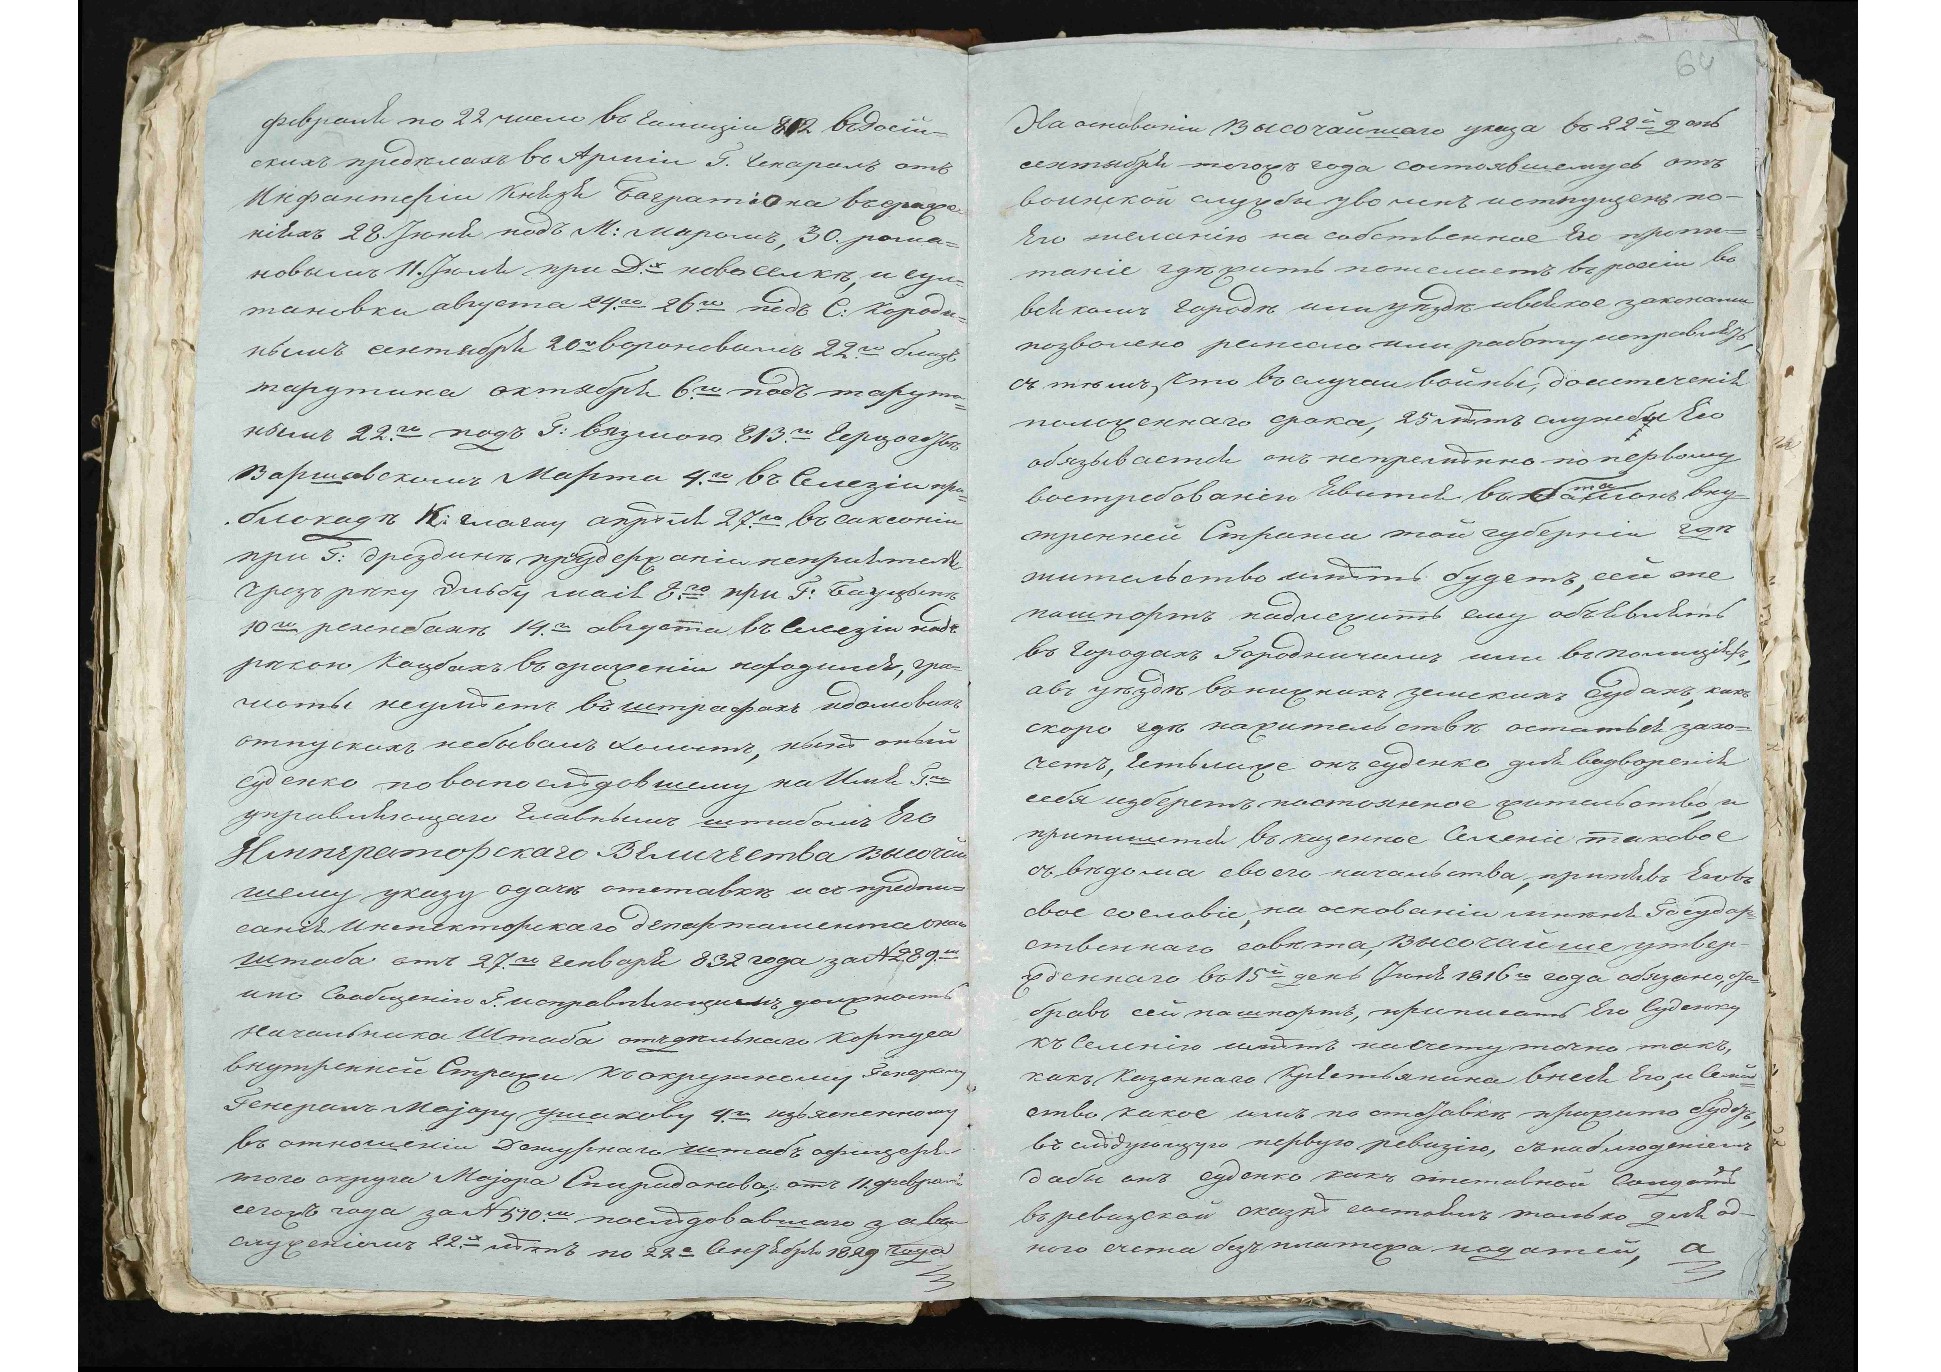 февраля по 22 число въ Галиціи 812 въ Россій=
скихъ предѣлахъ въ Арміи Г. Генералъ отъ
Инфантеріи Князя Багратіона въ сраже
ніяхъ 28 Іюня подъ М: Миромъ, 30. рома=
новымъ 11. Іюля при Д.ѣ новоселкѣ, и сул=
тановки августа 24.го 26го подъ С: Бороди=
нымъ сентября 20го вороновымъ 22.го близъ
тарутина октября 6.го подъ тарути=
нымъ 22.го подъ Г: вязмою 813.го Герцогствѣ
Варшавскомъ Марта 4.го въ Силезіи при
блокадѣ К: глагау апрѣля 27.го въ саксоніи
при Г: дрезденѣ при удержаніи непріятеля
чрезъ рѣку Эльбу маія 8.го при Г: Бауценѣ
10го рехенбахѣ 14.го августа въ Силезіи надъ
рѣкою Кацбахъ въ сраженіи находился, гра=
моты неумѣетъ въ штрафахъ идомовыхъ
отпускахъ небывалъ холостъ, нынѣ оный
суденко по воспослѣдовшему на Имя Г.на
управляющаго Главнымъ штабомъ Его
Императорскаго Величества высочай
шему указу одачѣ отставкѣ и съ предпи=
санія Инспекторскаго департамента онаго
штаба отъ 27.го Генваря 832 года за №289.мъ
ипо Сообщенію Г. исправляющимъ должность
Начальника Штаба отдѣльнаго Корпуса
внутренней Стражи Къ окружному Генералу
Генералъ Маіору ушакову 4.го изъясненному
въ отношеніи Дежурнаго штабъ офицера
того округа Маіора Спиридонова, отъ 11 февраля
сегожъ года за №570.мъ послѣдовавшаго за вы
служеніемъ 22.хъ лѣтъ по 22е Сентября 1829 года
64
На основаніи Высочайшаго указа въ 22й день
сентября тогожъ года состоявшемусь отъ
воинской службы уволенъ иотпущенъ по=
Его желанію на собственное Его пропи=
таніе гдѣ жить пожелаетъ въ россіи во
всякомъ городѣ или уѣздѣ ивсякое законами
позволено ремесло или работу исправлять,
съ тѣмъ, что въ случаи войны, до истеченія
положеннаго срока, 25 лѣтъ службы Его
обязывается онъ непремѣнно по первому
востребованію явится въ баталіонъ вну=
тренней Стражи той губерніи гдѣ
жительство имѣть будетъ, сей же
пашпортъ надлежитъ ему объявлять
въ городахъ Городничимъ или въ полиціяхъ,
авъ уѣздѣ въ нижнихъ земскихъ Судахъ, какъ
скоро гдѣ нажительствѣ остаться захо=
четъ, Естьлиже онъ суденко для водворенія
себя изберетъ постоянное жительство, и
припишется въ казенное Селеніе таковое
съ вѣдома своего начальства, принявъ Его въ
свое сословіе, на основаніи мнѣнія Государ=
ственнаго совѣта, Высочайше утвер=
жденнаго въ 15й день Іюня 1816го года обязано, ото=
бравъ сей пашпортъ, приписать Его Суденку
къ Селенію имѣть на счету точно такъ,
какъ Казеннаго Крестьянина внеся Его, и Семей=
ство какое имъ по отставкѣ прижито будетъ,
въ слѣдующую первую ревизію, съ наблюденіемъ
дабы онъ суденко какъ отставной Солдатъ
въ ревизской сказкѣ состоялъ только для од=
ного счета безъ платежа податей, а